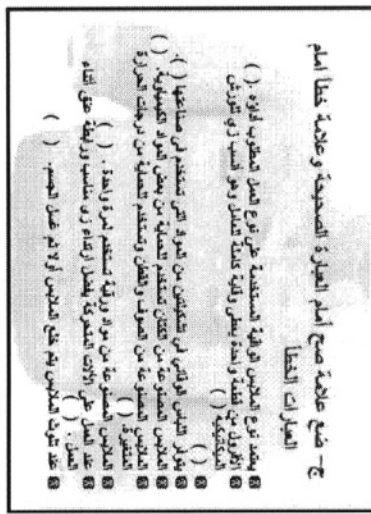 ج- ضع علامة صح أمام العبارة الصحيحة وعلامة خطأ أمام
العبارات الخطأ
يعتمد نوع الملابس الواقية المستخدمة على نوع العمل المطلوب أداؤه ( )
الأفرول من قطعة واحدة يعطى وقاية كاملة للعامل وهو أنسب زي للورش
الميكانيكية ( )
يتوفر اللباس الوقائي في تشكيلتين من المواد التي تستخدم في صناعتها ( ).
الملابس المصنوعة من الكتان تستخدم للحماية من بعض المواد الكيماوية. ( )
الملابس المصنوعة من الصوف والقطن وتستخدم للحماية من درجات الحرارة
المتغيرة. ( )
الملابس المصنوعة من مواد ورقية تستخدم لمرة واحدة. ( )
عند العمل على الآلات المتحركة يفضل ارتداء زي مناسب ورابطة عنق أثناء
العمل. ( )
عند تلوث الملابس يتم خلع الملابس أولا ثم غسل الجسم. ( )